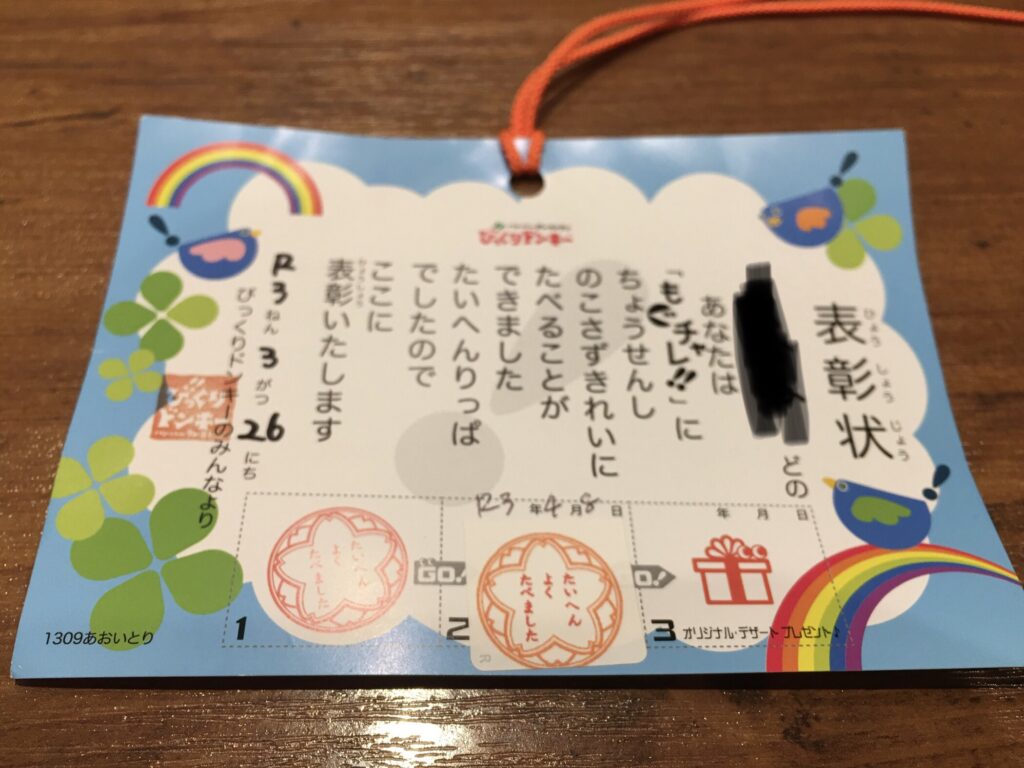 びっくりドンキー
表彰状
ひょうしょうじょう
どの
あなたは
「もぐチャレ!!」に
ちょうせんし
のこさずきれいに
たべることが
できました
たいへんりっぱ
でしたので
ここに
表彰いたします
R3ねん3がつ26にち
びっくりドンキーのみんなより
びっくりドンキー
1
たいへん
よく
たべました
GO!
2
R3年4月8日
たいへん
よく
たべました
O!
3
年 月 日
オリジナル・デザート プレゼント♪
1309あおいとり